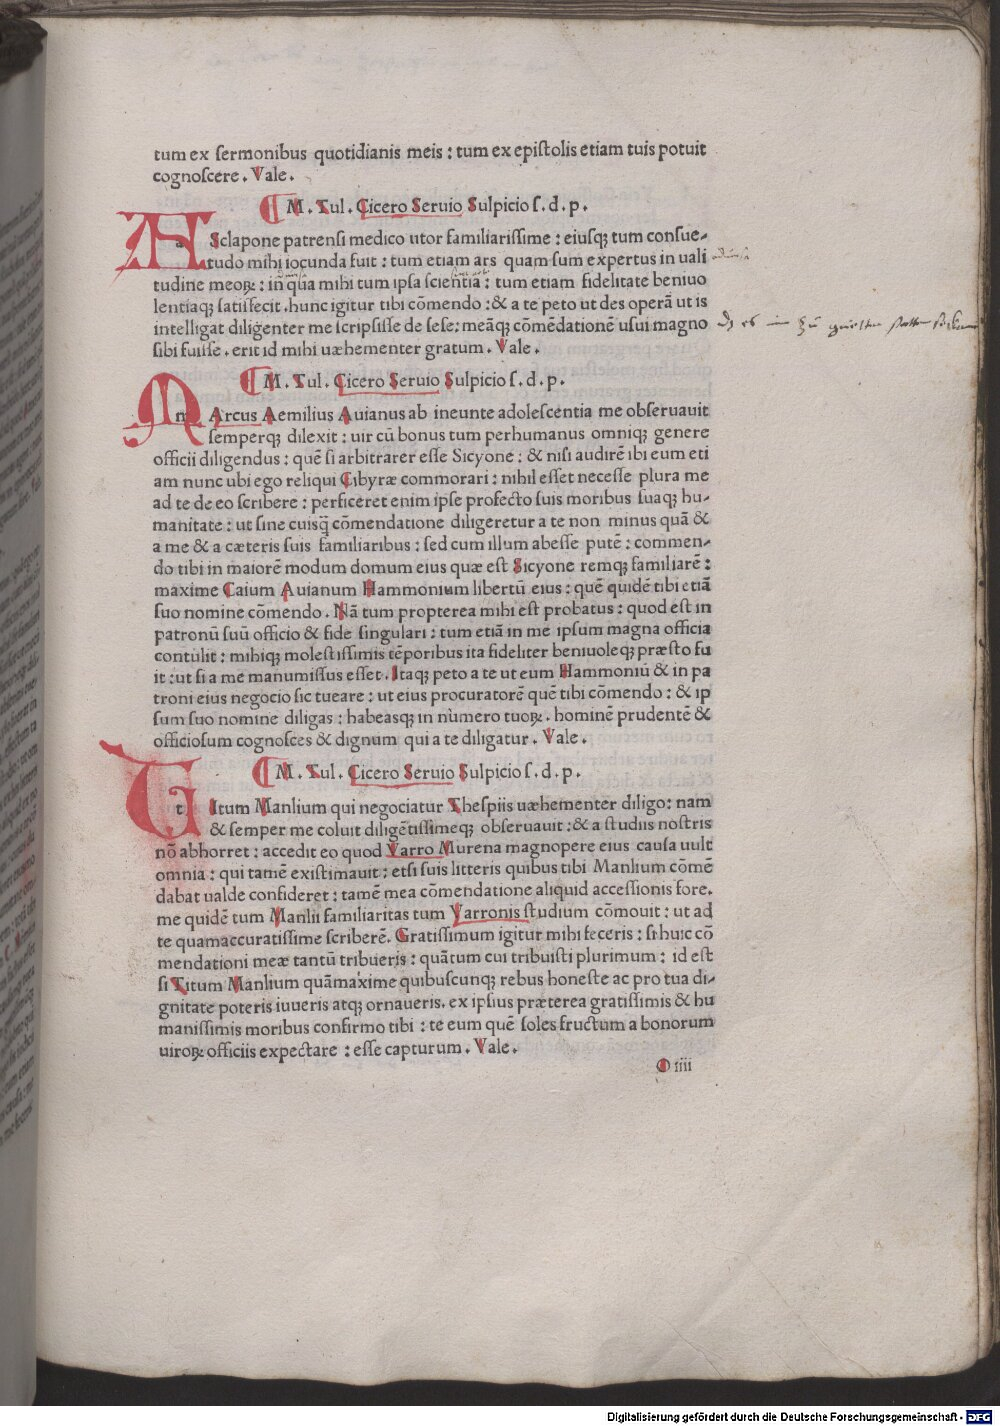 tum ex sermonibus quotidianis meis : tum ex epistolis etiam tuis potuit
cognoscere . Vale .
M . Tul . Cicero Seruio Sulpicio s . d . p .
ASclapone patrensi medico utor familiarissime : eiusqꝫ tum consue-
tudo mihi iocunda fuit : tum etiam ars quam sum expertus in uali
tudine meoꝝ : in qua mihi tum ipsa scientia : tum etiam fidelitate beniuo
lentiaqꝫ satisfecit . hunc igitur tibi cōmendo : & a te peto ut des operā ut is
intelligat diligenter me scripsisse de sese : meāqꝫ cōmēdationē usui magno
sibi fuisse . erit id mihi uæhementer gratum . Vale .
M . Tul . Cicero Seruio Sulpicio s . d . p .
MArcus Aemilius Auianus ab ineunte adolescentia me obseruauit
semperqꝫ dilexit : uir cū bonus tum perhumanus omniqꝫ genere
officii diligendus : quē si arbitrarer esse Sicyone : & nisi audirē ibi eum eti
am nunc ubi ego reliqui Cibyræ commorari : nihil esset necesse plura me
ad te de eo scribere : perficeret enim ipse profecto suis moribus suaqꝫ hu-
manitate : ut sine cuisq̄ cōmendatione diligeretur a te non minus quā &
a me & a cæteris suis familiaribus : sed cum illum abesse putē : commen-
do tibi in maiorē modum domum eius quæ est Sicyone remqꝫ familiarē :
maxime Caium Auianum Hammonium libertū eius : quē quidē tibi etiā
suo nomine cōmendo . Nā tum propterea mihi est probatus : quod est in
patronū suū officio & fide singulari : tum etiā in me ipsum magna officia
contulit : mihiqꝫ molestissimis tēporibus ita fideliter beniuoleqꝫ præsto fu
it : ut si a me manumissus esset . Itaqꝫ peto a te ut eum Hammoniū & in pa
troni eius negocio sic tueare : ut eius procuratorē quē tibi cōmendo : & ip
sum suo nomine diligas : habeasqꝫ in numero tuoꝝ . hominē prudentē &
officiosum cognosces & dignum qui a te diligatur . Vale .
M . Tul . Cicero Seruio Sulpicio s . d . p .
TItum Manlium qui negociatur Thespiis uæhementer diligo : nam
& semper me coluit diligētissimeqꝫ obseruauit : & a studiis nostris
nō abhorret : accedit eo quod Varro Murena magnopere eius causa uult
omnia : qui tamē existimauit : etsi suis litteris quibus tibi Manlium cōmē
dabat ualde confideret : tamē mea cōmendatione aliquid accessionis fore .
me quidē tum Manlii familiaritas tum Varronis studium cōmouit : ut ad
te quamaccuratissime scriberē . Gratissimum igitur mihi feceris : si huic cō
mendationi meæ tantū tribueris : quātum cui tribuisti plurimum : id est
si Titum Manlium quāmaxime quibuscunqꝫ rebus honeste ac pro tua di-
gnitate poteris iuueris atqꝫ ornaueris . ex ipsius præterea gratissimis & hu
manissimis moribus confirmo tibi : te eum quē soles fructum a bonorum
uiroꝝ officiis expectare : esse capturum . Vale .
O iiii
Digitalisierung gefördert durch die Deutsche Forschungsgemeinschaft - DFG